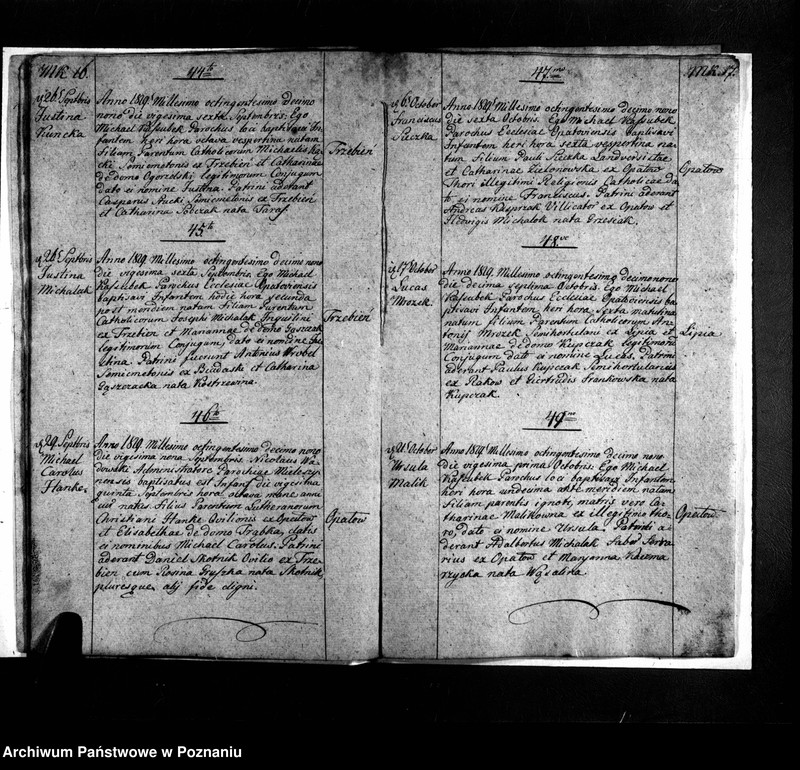 44ta
d. 26 Septbris
Justina
Anno 1819 Millesimo octingentesimo decimo
nono die vigesima sexta Septembris. Ego
Michael Kafsubek Parochus loci baptisavi In-
fantem heri hora octava vespertina natam
Filiam Parentum Catholicorum Michaelis
Semicmetonis ex Trzebień et Catharinae
de domo Ogorzelski legitimorum Conjugum
dato ei nomine Justina. Patrini aderant
Casparus Semicmetonis ex Trzebień
et Catharina nata
Trzebień
45ta
d. 26 Septbris
Justina
Michalak
Anno 1819 Millesimo octingentesimo decimo nono
die vigesima sexta Septembris. Ego Michael
Kafsubek Parochus Ecclesiae Opatoviensis
baptisavi Infantem hodie hora secunda
post meridiem natam Filiam Parentum
Catholicorum Josephi Michalak
ex Trzebień et Mariannae de domo
legitimorum Conjugum, dato ei nomine Ju-
stina. Patrini fuerunt Antonius Wrobel
Semicmetonis ex et Catharina
nata Kostrzewina.
Trzebień
46ta
d. 29 Septbris
Michael
Carolus
Hanke.
Anno 1819 Millesimo octingentesimo decimo nono
die vigesima nona Septembris. Nicolaus Wa-
dowski Administratore Parochiae
baptisatus est Infans die vigesima
quinta Septembris hora octava mane anni
natus. Filius Parentum Lutheranorum
Christiani Hanke Ovilionis ex Opatow
et Elisabethae de domo Trąbka, datis
ei nominibus Michael Carolus. Patrini
aderant Daniel Skotnik Ovilio ex Trze-
bień cum Rosina nata Skotnik
pluresque alij fide digni.
Opatow
47mo
d. 6 October
Franciscus
Anno 1819 Millesimo octingentesimo decimo nono
die sexta Octobris. Ego Michael Kafsubek
Parochus Ecclesiae Opatoviensis Baptisavi
Infantem heri hora sexta vespertina na-
tum Filium Pauli
et Catharinae ex Opatow
Thori illegitimi Religionis Catholicae da-
to ei nomine Franciscus. Patrini aderant
Andreas Kasprzak Villicator ex Opatow et
Hedwigis Michalak nata Grzesiak.
Opatow
48vo
d. 17 October
Lucas
Mrozek
Anno 1819 Millesimo octingentesimo decimo nono
die decima septima Octobris. Ego Michael
Kafsubek Parochus Ecclesiae Opatoviensis ba-
ptisavi Infantem heri hora sexta matutina
natum filium Parentum Catholicorum An-
tonij Mrozek ex Lipia et
Mariannae de domo Kupczak legitimorum
Conjugum dato ei nomine Lucas. Patrini
aderant Paulus Kupczak Semihortularius
ex Rakow et Giertrudis Frankowska nata
Kupczak.
Lipia
49no
d. 21 October
Ursula
Malik
Anno 1819 Millesimo octingentesimo decimo nono
die vigesima prima Octobris. Ego Michael
Kafsubek Parochus loci baptisavi Infantem
heri hora undecima ante meridiem natam
Filiam parentis ignoti, matris vero Ca-
tharinae Malikowna ex illegitimo tho-
ro, dato ei nomine Ursula. Patrini a-
derant Adalbertus Michalak Faber Ferra-
rius ex Opatow et Maryanna Kaczma-
rzycka nata
Opatow
Archiwum Państwowe w Poznaniu